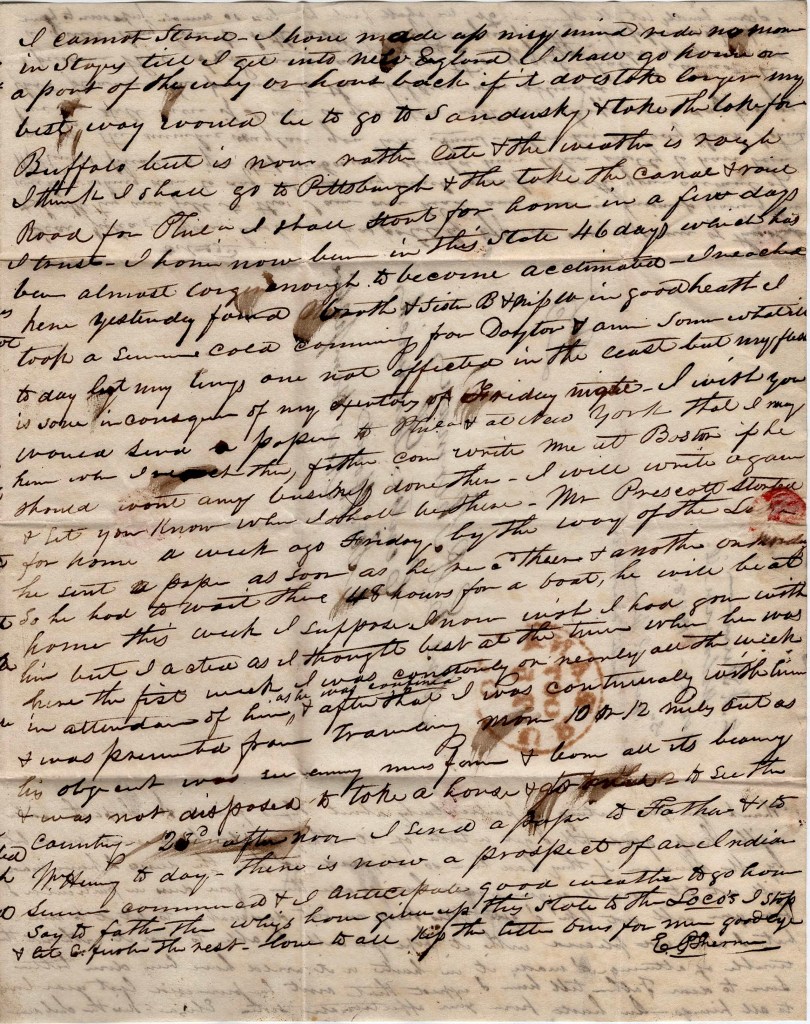 I cannot Stand - I have made up my mind ride no more
in Stages till I get into New England I shall go home on
a part of the way on horse back if it does take longer my
best way would be to go to Sandusky, & take the lake for
Buffalo but is now rather late & the weather is rough
I think I shall go to Pittsburgh & the take the canal & rail
Road for Phila I shall Start for home in a few days
I trust - I have now been in this State 46 days which has
been almost long enough to become acclimated - I reached
here yesterday found Broth & Sister B & in good health I
took a severe cold comming from Dayton & am Some what ill
to day but my lungs are not affected in the least but my flesh
is sore in consequen of my exertions of Friday night - I wish you
would send a paper to Phila & at New York that I may
him when I reach ther, father can write me at Boston if he
should want any business done ther - I will write again
& let you Know when I shall be there - Mr Prescott Started
for home a week ago Friday, by the way of the Lake
he sent a paper as soon as he rec'd there & another on Monday
So he had to wait there 48 hours for a boat, he will be at
home this week I suppose I now wish I had gone with
him but I acted as I thought best at the time when he was
here the first week I was constantly or nearly all the week
in attendan of him, as he was confined & after that I was continually with him
& was prevented from Traveling more 10 or 12 miles out as
his object was seeing mus farm & barn all its beauty
& was not disposed to take a horse & go to see the
Country - 23d after noon I send a paper to Father & to
to day - There is now a prospect of an Indian
Summer commenced & I anticipate good weather to go home
Say to father the whigs have given up this State to the Loco's I stop
& let C. finish the rest - Love to all Kiss the little ones for me good bye
E. P. Sherman